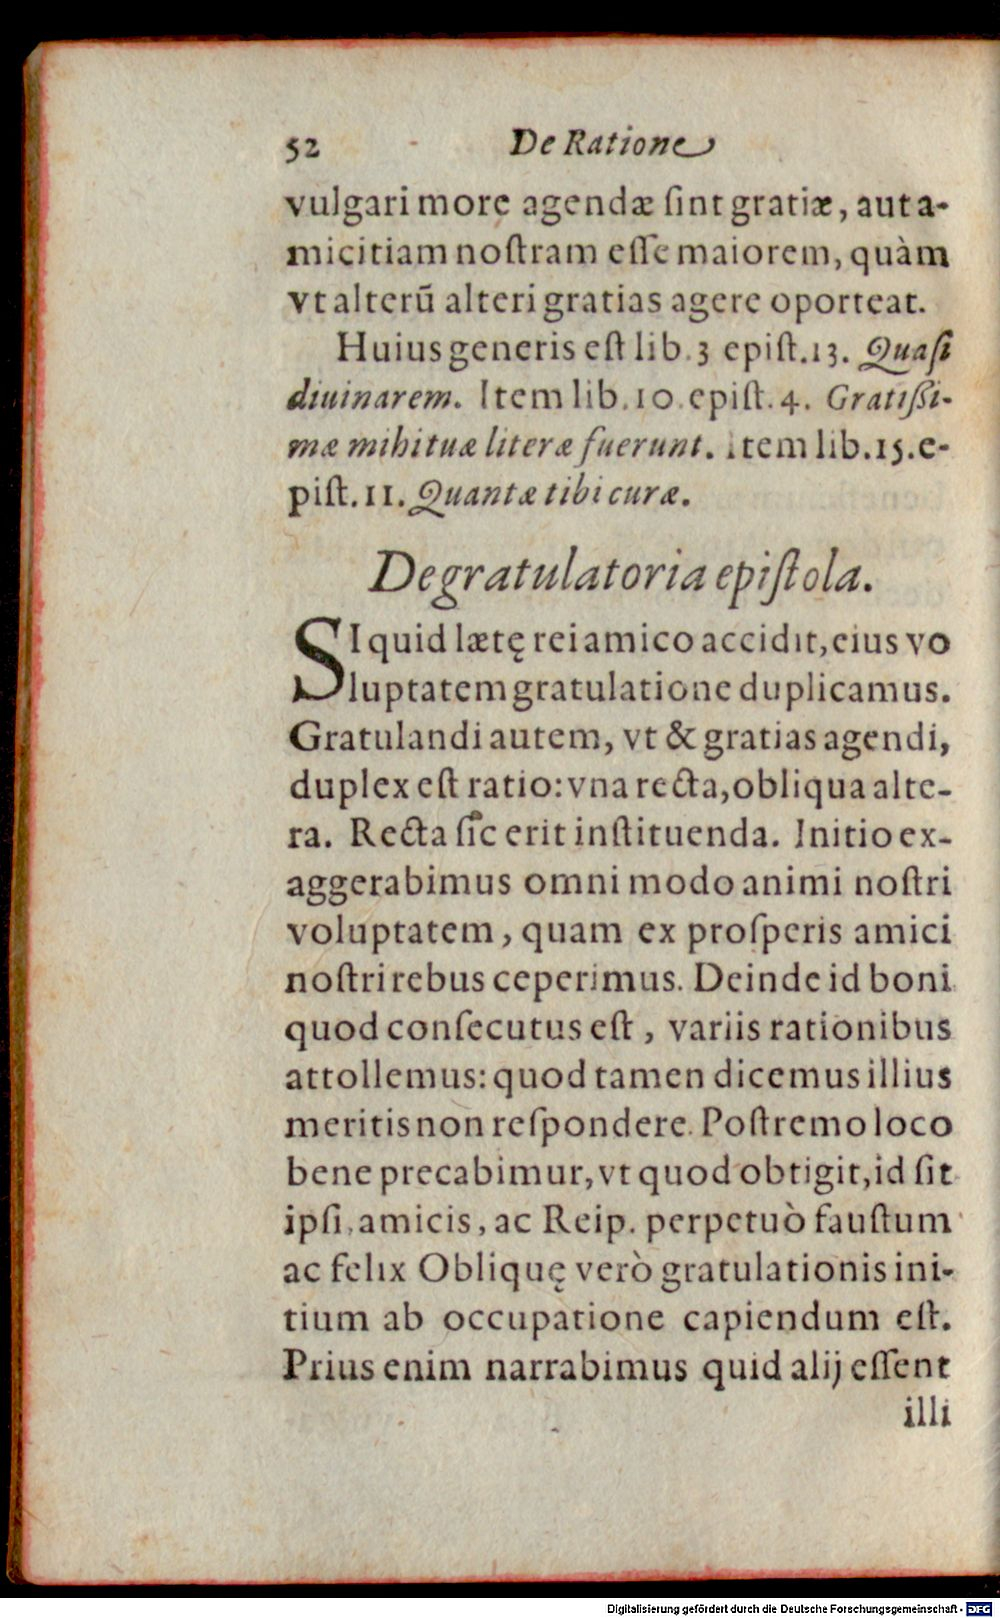 52 De Ratione
vulgari more agendæ ſint gratiæ, aut a-
micitiam noſtram eſſe maiorem, quàm
vt alterũ alteri gratias agere oporteat.
Huius generis eſt lib. 3 epiſt. 13. Quaſi
diuinarem. Item lib. 10. epiſt. 4. Gratiſſi-
mæ mihi tuæ literæ fuerunt. Item lib. 15. e-
piſt. 11. Quantæ tibi curæ.
De gratulatoria epiſtola.
SI quid lætę rei amico accidit, eius vo
luptatem gratulatione duplicamus.
Gratulandi autem, vt & gratias agendi,
duplex eſt ratio: vna recta, obliqua alte-
ra. Recta ſic erit inſtituenda. Initio ex-
aggerabimus omni modo animi noſtri
voluptatem, quam ex proſperis amici
noſtri rebus ceperimus. Deinde id boni
quod conſecutus eſt, variis rationibus
attollemus: quod tamen dicemus illius
meritis non reſpondere. Poſtremo loco
bene precabimur, vt quod obtigit, id ſit
ipſi, amicis, ac Reip. perpetuò fauſtum
ac felix Obliquę verò gratulationis ini-
tium ab occupatione capiendum eſt.
Prius enim narrabimus quid alij eſſent
illi
Digitalisierung gefördert durch die Deutsche Forschungsgemeinschaft - DFG